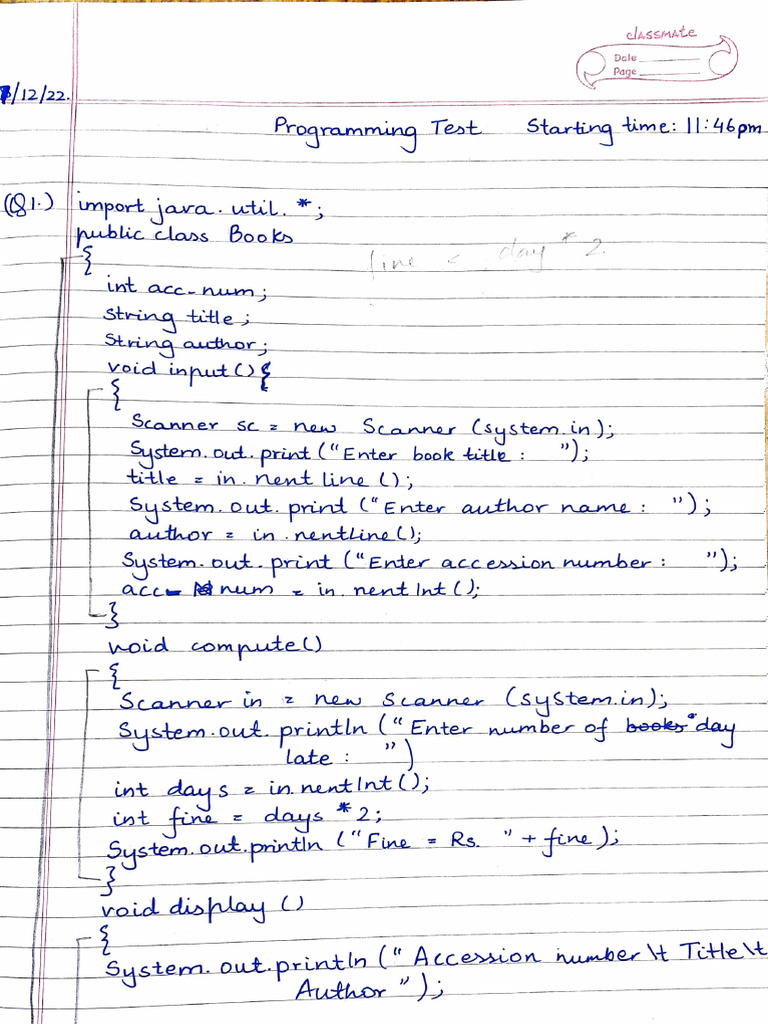 classmate
Date
Page
/12/22.
Programming Test Starting time: 11:46pm
(Q1.) import java.util.*;
public class Books
{
fine = day * 2.
int acc-num;
String title;
String author;
void input(){
{
Scanner sc = new Scanner (system.in);
System.out.print ("Enter book title : ");
title = in.nent line ();
System.out.print ("Enter author name : ");
author = in.nentLine();
System.out.print ("Enter accession number : ");
acc-num = in.nentInt();
}
void compute()
{
Scanner in = new Scanner (system.in);
System.out.println ("Enter number of books day
late : ")
int days = in.nentInt();
int fine = days * 2;
System.out.println ("Fine = Rs. " + fine);
}
void display ()
{
System.out.println (" Accession number\t Title\t
Author ");